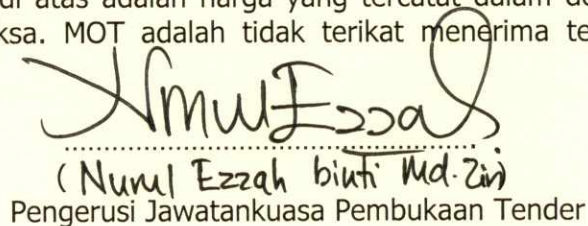 di atas adalah harga yang tercatat dalam
ksa. MOT adalah tidak terikat menerima
NurulEzzah
(Nurul Ezzah binti Md. Zin)
Pengerusi Jawatankuasa Pembukaan Tender